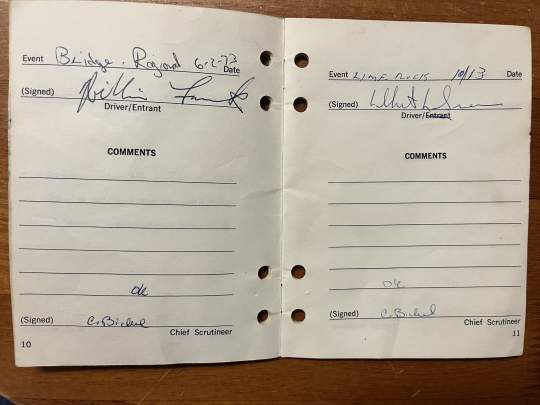 Event Bridge. Regional 6-2-73 Date
(Signed)
Driver/Entrant
COMMENTS
ok
(Signed) C. Bickel
Chief Scrutineer
10
Event LIME ROCK 10/13 Date
(Signed)
Driver/Entrant
COMMENTS
ok
(Signed) C. Bickel
Chief Scrutineer
11